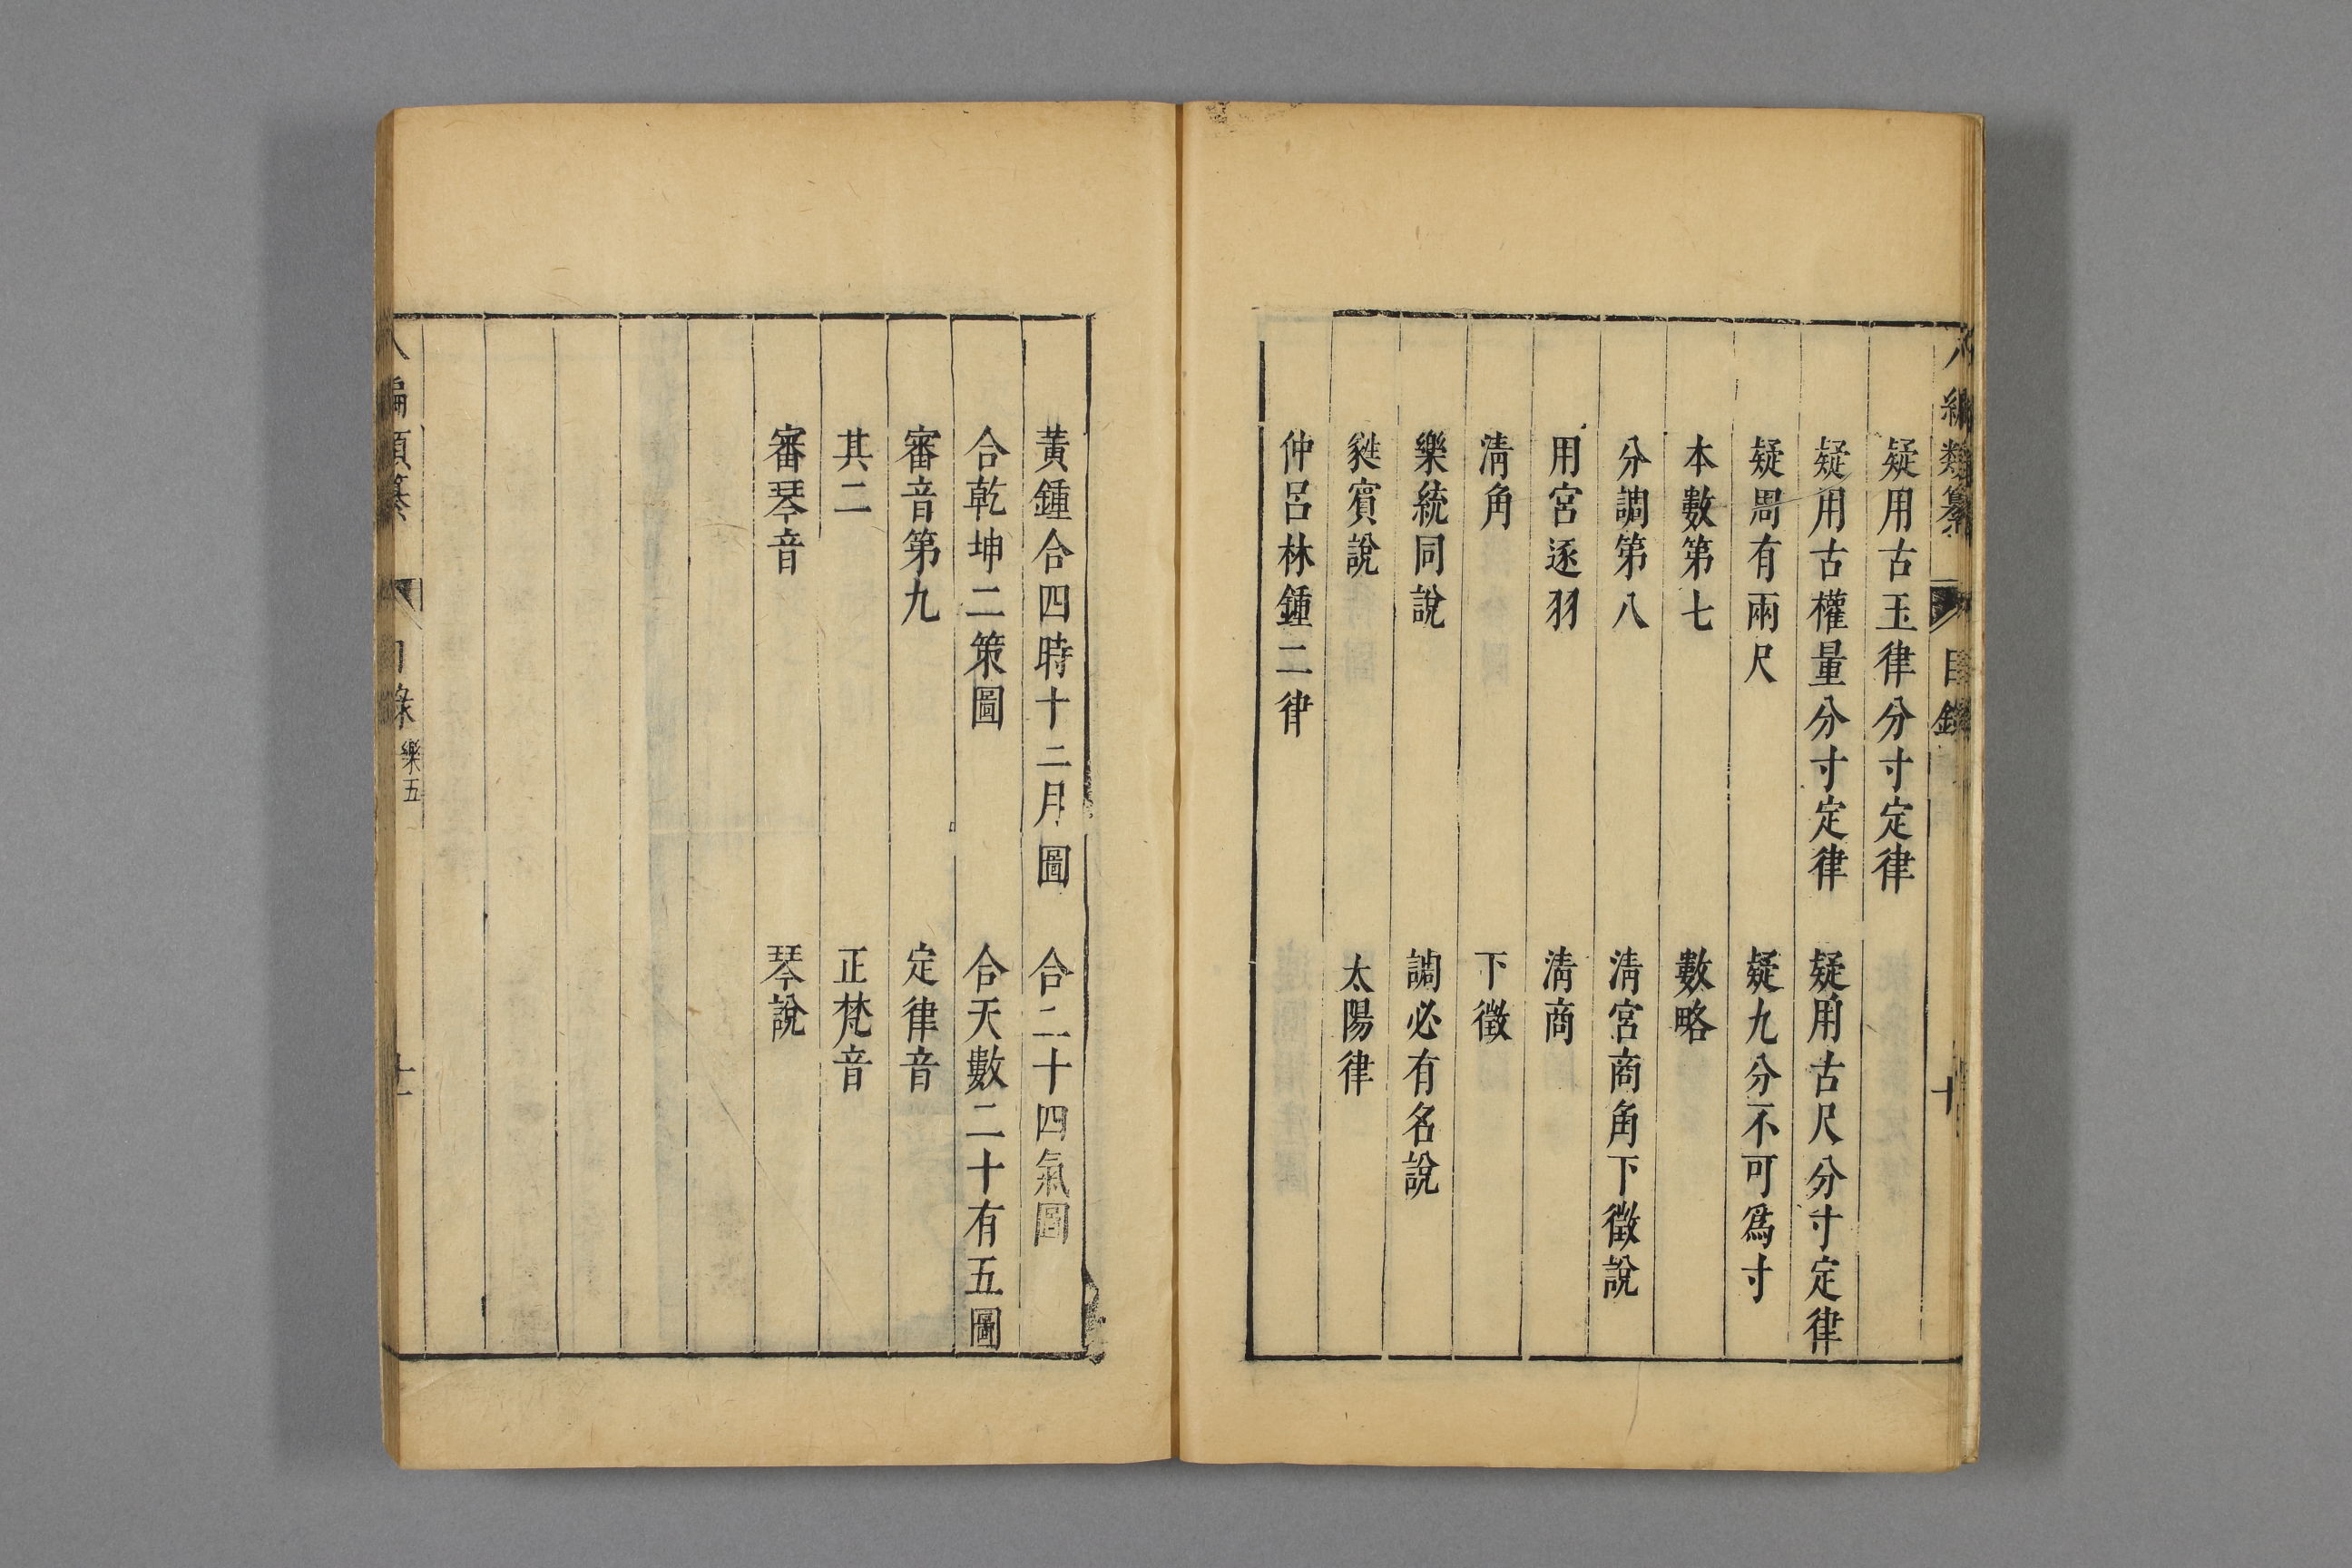 八編類纂 目錄 十
疑用古玉律分寸定律
疑用古權量分寸定律 疑用古尺分寸定律
疑周有兩尺 疑九分不可爲寸
本數第七 數略
分調第八 清宮商角下徵說
用宮逐羽 清商
清角 下徵
樂統同說 調必有名說
蕤賓說 太陽律
仲呂林鍾二律
黃鍾合四時十二月圖 合二十四氣圖
合乾坤二策圖 合天數二十有五圖
審音第九 定律音
其二 正梵音
審琴音 琴說
八編類纂 目錄 樂五 十一